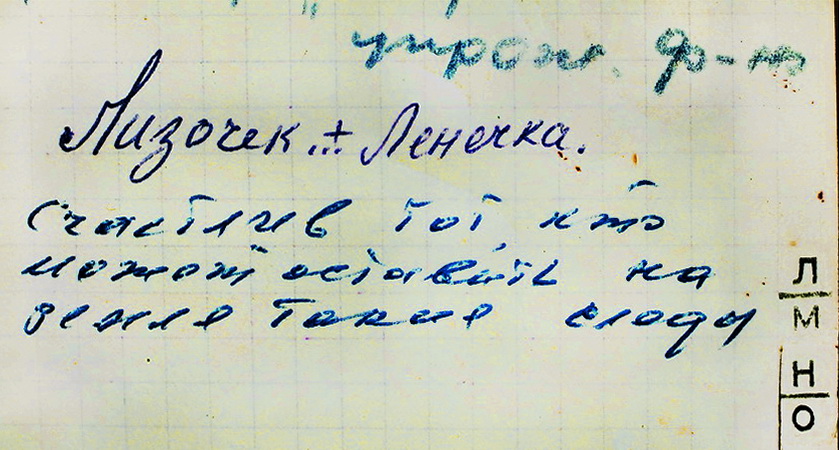 упрож. ф-т
Лизочек + Ленечка.
Счастлив тот кто
может оставить на
земле такие следы
Л
М
Н
О